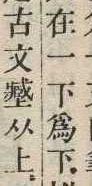 在一下爲下
古文从上